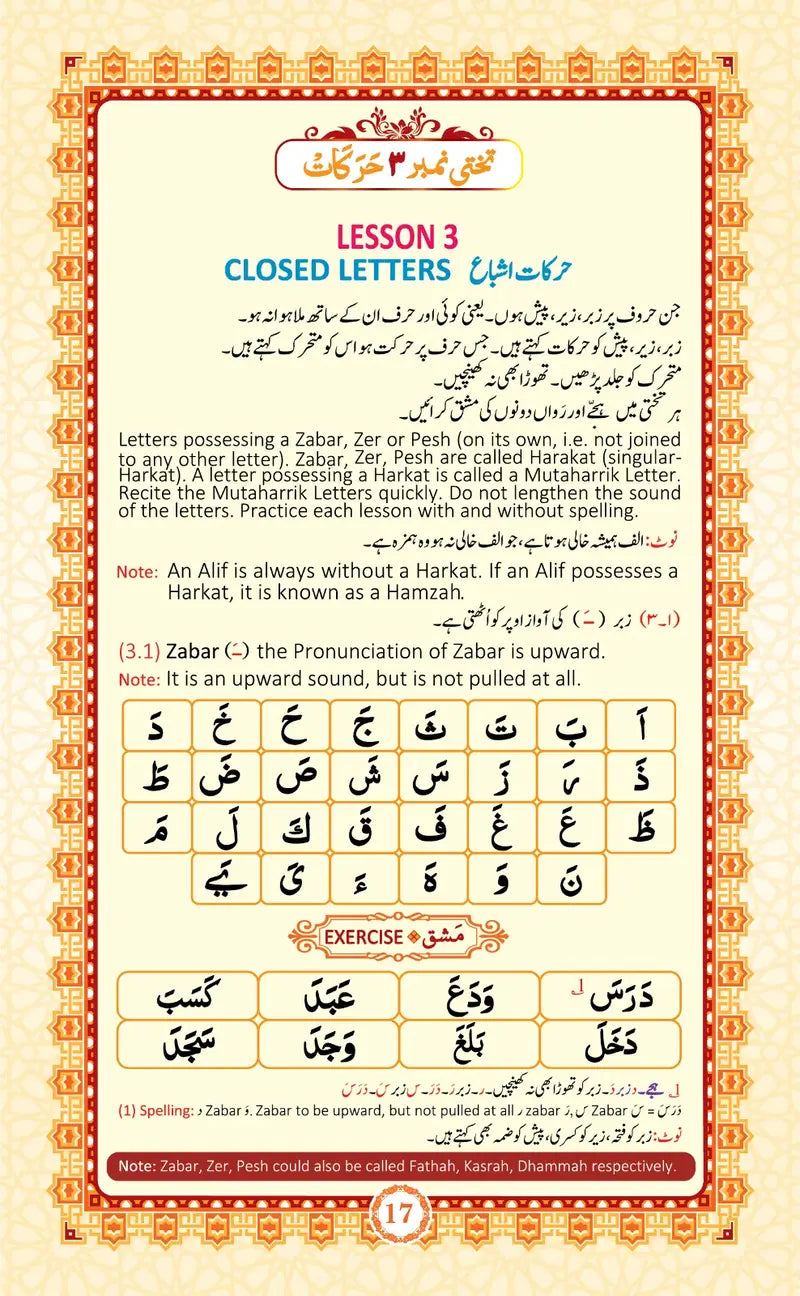 تختی نمبر ۳ حَرَکَاتْ
LESSON 3
CLOSED LETTERS حرکات اشباع
جن حروف پر زبر، زیر، پیش ہوں۔ یعنی کوئی اور حرف ان کے ساتھ ملا ہوا نہ ہو۔
زبر، زیر، پیش کو حرکات کہتے ہیں۔ جس حرف پر حرکت ہو اس کو متحرک کہتے ہیں۔
متحرک کو جلد پڑھیں۔ تھوڑا بھی نہ کھینچیں۔
ہر تختی میں ہجّے اور رَواں دونوں کی مشق کرائیں۔
Letters possessing a Zabar, Zer or Pesh (on its own, i.e. not joined
to any other letter). Zabar, Zer, Pesh are called Harakat (singular-
Harkat). A letter possessing a Harkat is called a Mutaharrik Letter.
Recite the Mutaharrik Letters quickly. Do not lengthen the sound
of the letters. Practice each lesson with and without spelling.
نوٹ: الف ہمیشہ خالی ہوتا ہے، جو الف خالی نہ ہو وہ ہمزہ ہے۔
Note: An Alif is always without a Harkat. If an Alif possesses a
Harkat, it is known as a Hamzah.
(۳۔۱) زبر (ـَـ) کی آواز اوپر کو اُٹھتی ہے۔
(3.1) Zabar (ـَـ) the Pronunciation of Zabar is upward.
Note: It is an upward sound, but is not pulled at all.
اَ بَ تَ ثَ جَ حَ خَ دَ
ذَ رَ زَ سَ شَ صَ ضَ طَ
ظَ عَ غَ فَ قَ كَ لَ مَ
نَ وَ هَ ءَ یَ یَے
EXERCISE مَشق
دَرَسَ ۱ وَدَعَ عَبَدَ كَسَبَ
دَخَلَ بَلَغَ وَجَدَ سَجَدَ
۱ ہجے۔ د زبر دَ۔ زبر کو تھوڑا بھی نہ کھینچیں۔ ر۔ زبر رَ۔ دَرَ۔ س زبر سَ۔ دَرَسَ
(1) Spelling: د Zabar دَ. Zabar to be upward, but not pulled at all ر zabar رَ, س Zabar سَ = دَرَسَ
نوٹ: زبر کو فتحہ، زیر کو کسری، پیش کو ضمہ بھی کہتے ہیں۔
Note: Zabar, Zer, Pesh could also be called Fathah, Kasrah, Dhammah respectively.
17